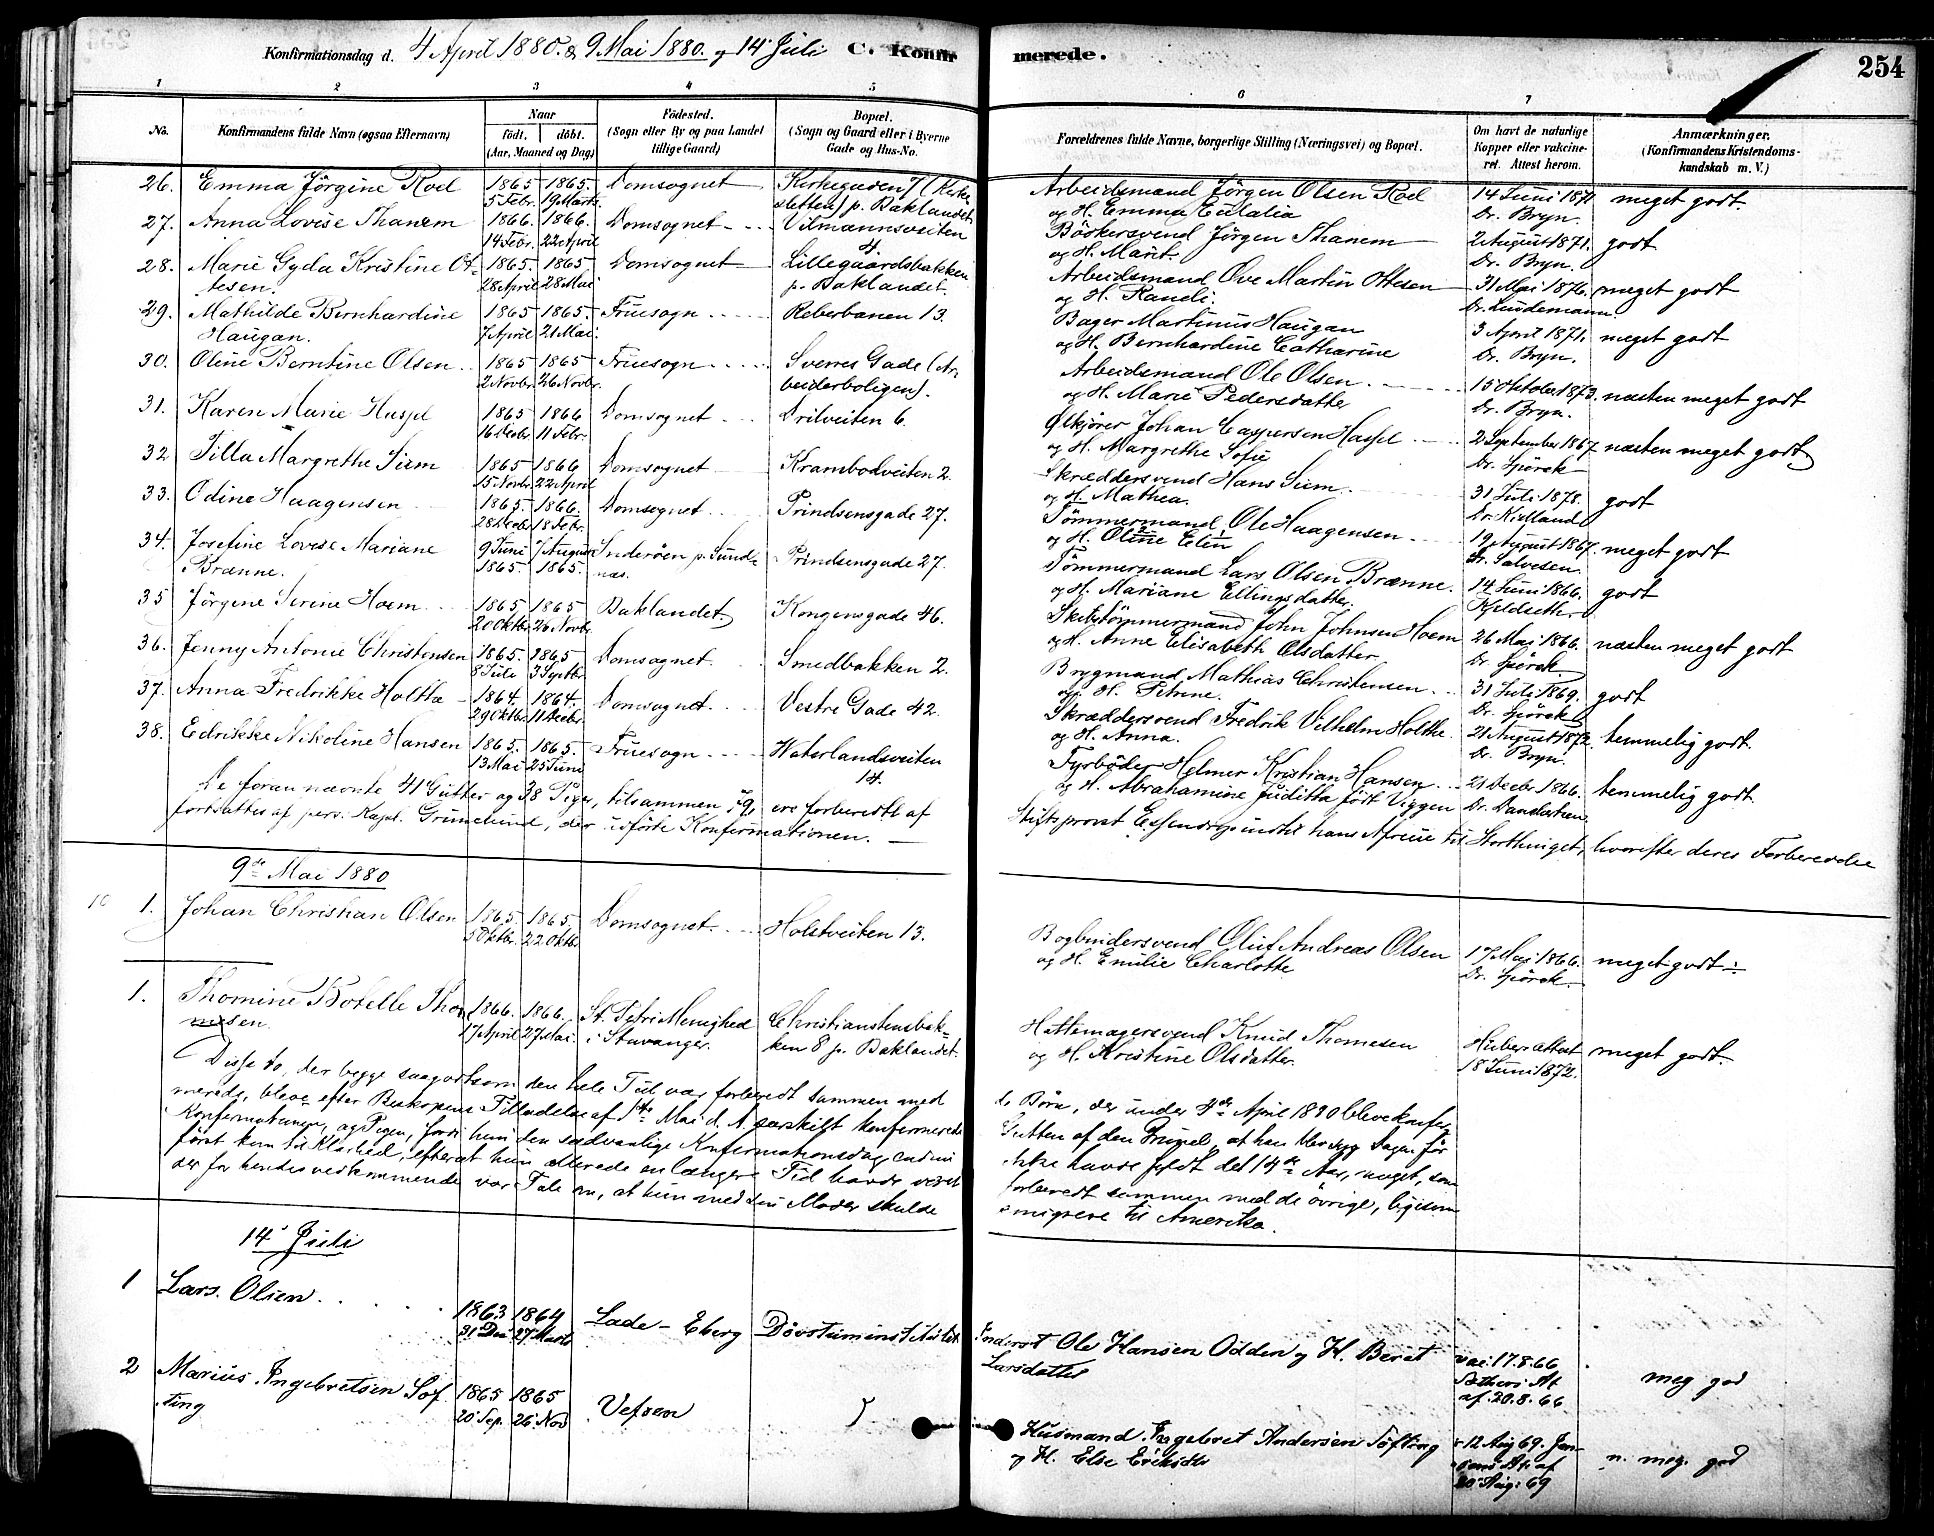 Konfirmationsdag d. 4 April 1880. & 9 Mai 1880. og 14' Juli C. Konfirmerede. 254
1 2 3 4 5 6 7
No. Konfirmandens fulde Navn (ogsaa Efternavn) Naar født, døbt. (Aar, Maaned og Dag) Fødested. (Sogn eller By og paa Landet tillige Gaard) Bopæl. (Sogn og Gaard eller i Byerne Gade og Hus-No. Forældrenes fulde Navne, borgerlige Stilling (Næringsvei) og Bopæl. Om havt de naturlige Kopper eller vaccineret. Attest herom. Anmærkninger. (Konfirmandens Kristendomskundskab m. V.)
26. Emma Jørgine Roel 1865 5 Febr. 1865. 19 Marts Domsognet Kirkegaden 7 (Kirkesletten) p. Baklandet Arbeidsmand Jörgen Olsen Roel og H. Emma Eulalia 14 Juni 1871 Dr. Bryn. meget godt.
27. Anna Lovise Thanem 1866. 14 Febr. 1866. 22 April Domsognet Vilmannsveiten 4. Bödkersvend Jörgen Thanem og H. Marit. 2 August 1871. Dr. Bryn. godt
28. Marie Gyda Kristine Ottesen. 1865. 28 April 1865 28 Mai Domsognet Lillegaardsbakken p. Baklandet. Arbeidsmand Ove Martin Ottesen og H. Randi. 31 Mai 1876. Dr. Lindemann. meget godt
29. Mathilde Bernhardine Haugan. 1865 7 April 1865. 21 Mai. Fruesogn Reberbanen 13. Bager Martinus Haugan og H. Bernhardine Catharine 3 April 1871. Dr. Bryn. meget godt
30. Oline Berntine Olsen 1865 2 Novbr. 1865 26 Novbr. Fruesogn Sverres Gade (Arbeiderboligen). Arbeidsmand Ole Olsen og H. Marie Pedersdatter 15 Oktober 1873. Dr. Bryn. næsten meget godt
31. Karen Marie Hassel 1865 16 Decbr. 1866 11 Febr. Domsognet Örilveiten 6. Ölkjörer Johan Caspersen Hassel og H. Margrethe Sofie 2 September 1867 Dr. Spörck næsten meget godt
32 Tilla Margrethe Siem 1865 15 Novbr. 1866 22 April Domsognet Krambodveiten 2. Skræddersvend Hans Siem. og H. Mathea. 31 Juli 1878. Dr. Kielland godt
33. Odine Haagensen 1865. 28 Decbr. 1866. 18 Febr. Domsognet Prindsensgade 27. Tömmermand Ole Haagensen og H. Oline Elin 19 August 1867. Dr. Salvesen. meget godt
34. Josefine Lovise Mariane Brænne. 9 Juni 1865. 7 August 1865. Inderöen p. Sundnæs. Prindsensgade 27 Tömmermand Lars Olsen Brænne. og H. Mariane Ellingsdatter. 14 Juni 1866. Kjeldseth. godt
35 Jörgine Serine Hoem 1865 20 Oktbr. 1865 26 Novbr. Baklandet. Kongensgade 46. Skibstömmermand John Johnsen Hoem og H. Anne Elisabeth Olsdatter 26 Mai 1866. Dr. Spörck næsten meget godt
36. Jenny Antonie Christensen 1865. 8 Juli 1865 3 Septbr. Domsognet Smedbakken 2. Brygmand Mathias Christensen og H. Petrine. 31 Juli 1869. Dr. Spörck godt
37. Anna Fredrikke Holthe 1864. 29 Oktbr. 1864. 11 Decbr. Domsognet. Vestre Gade 42. Skræddersvend Fredrik Vilhelm Holthe og H. Anna. 21 August 1872. Dr. Bryn. temmelig godt.
38. Edrikke Nikoline Hansen 1865. 13 Mai 1865. 25 Juni Fruesogn Waterlandsveiten 14. Fyrböder Helmer Kristian Hansen og H. Abrahamine Juditha født Viggen 21 Decbr. 1866. temmelig godt.
De foran nævnte 41 Gutter og 38 Piger, tilsammen 79, ere forberedte af Stiftsprovst Essendrop indtil hans Afreise til Storthinget, hvorefter deres Forberedelse
fortsattes af pers. Kapl. Grimelund, der udførte Konfirmationen.
9de Mai 1880
10 1. Johan Christian Olsen 1865. 5 Oktbr. 1865. 22 Oktbr Domsognet. Holstveiten 13. Bogbindersvend Oluf Andreas Olsen og H. Emilie Charlotte 17 Mai 1866. Dr. Spörck. meget godt
1. Thomine Botelle Thomesen. 1866. 17 April 1866. 27 Mai. St. Petri Menighed i Stavanger. Christianstensbakken 8 p. Baklandet. Hattemagersvend Knud Thomesen og H. Kristine Olsdatter. 18 Juni 1872. meget godt.
Disse to, der begge saagodtsom den hele Tid var forberedt sammen med de Börn, der under 4de April 1880 bleve konfir
merede, bleve efter Biskopens Tilladelse af 1ste Mai d. A. særskilt konfirmerede Gutten af den Grund, at han blev syg Dagen för
Konfirmationen, og Pigen, fordi hun den sædvanlige Konfirmationsdag endnu ikke havde fyldt det 14de Aar, noget, som
först kom til Klarhed, efterat hun allerede en længere Tid havde været forberedt sammen med de övrige, ligesom
der for hendes vedkommende var Tale om, at hun med sin Moder skulde emigrere til Amerika.
14' Juli
1 Lars Olsen 1863 31 Dec 1864 27 Marts Lade - Eberg Døvstumminstitutet Inderst Ole Hansen Odden og H. Beret Larsdatter vac. 17.8.66 At af. 20.8.66 meg god
2 Marius Ingebretsen Söfting 1865 20' Sep. 1865 26' Nov Vefsen Husmand Ingebret Andersen Söfting og H. Else Eriksdtr v 12 Aug 69. At. af 20' Aug: 69 n. meg. god